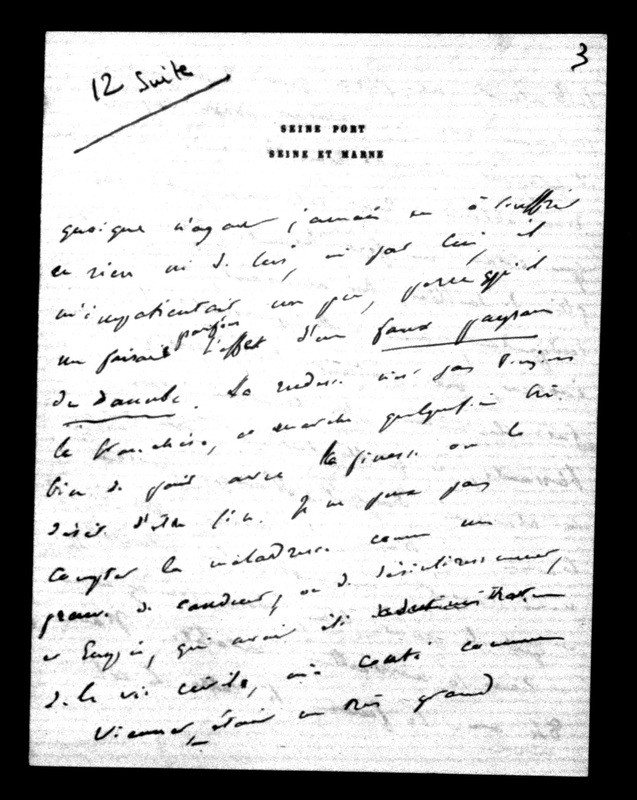 3
12 Suite
SEINE PORT
SEINE ET MARNE
quoique n'ayant jamais eu à souffrir
en rien ni de lui, ni par lui, il
m'impatientait un peu, parce qu'il
me faisait parfois l'effet d'un faux paysan
du Danube. La rudesse n'est pas toujours
la franchise, et marche quelquefois très
bien de pair avec la finesse ou le
désir d'être fin. Je ne peux pas
compter la maladresse comme une
preuve de candeur, ou de désintéressement,
et Eugène, qui avait été
de la vie civile, mi comté comme
Viennet, était un très grand